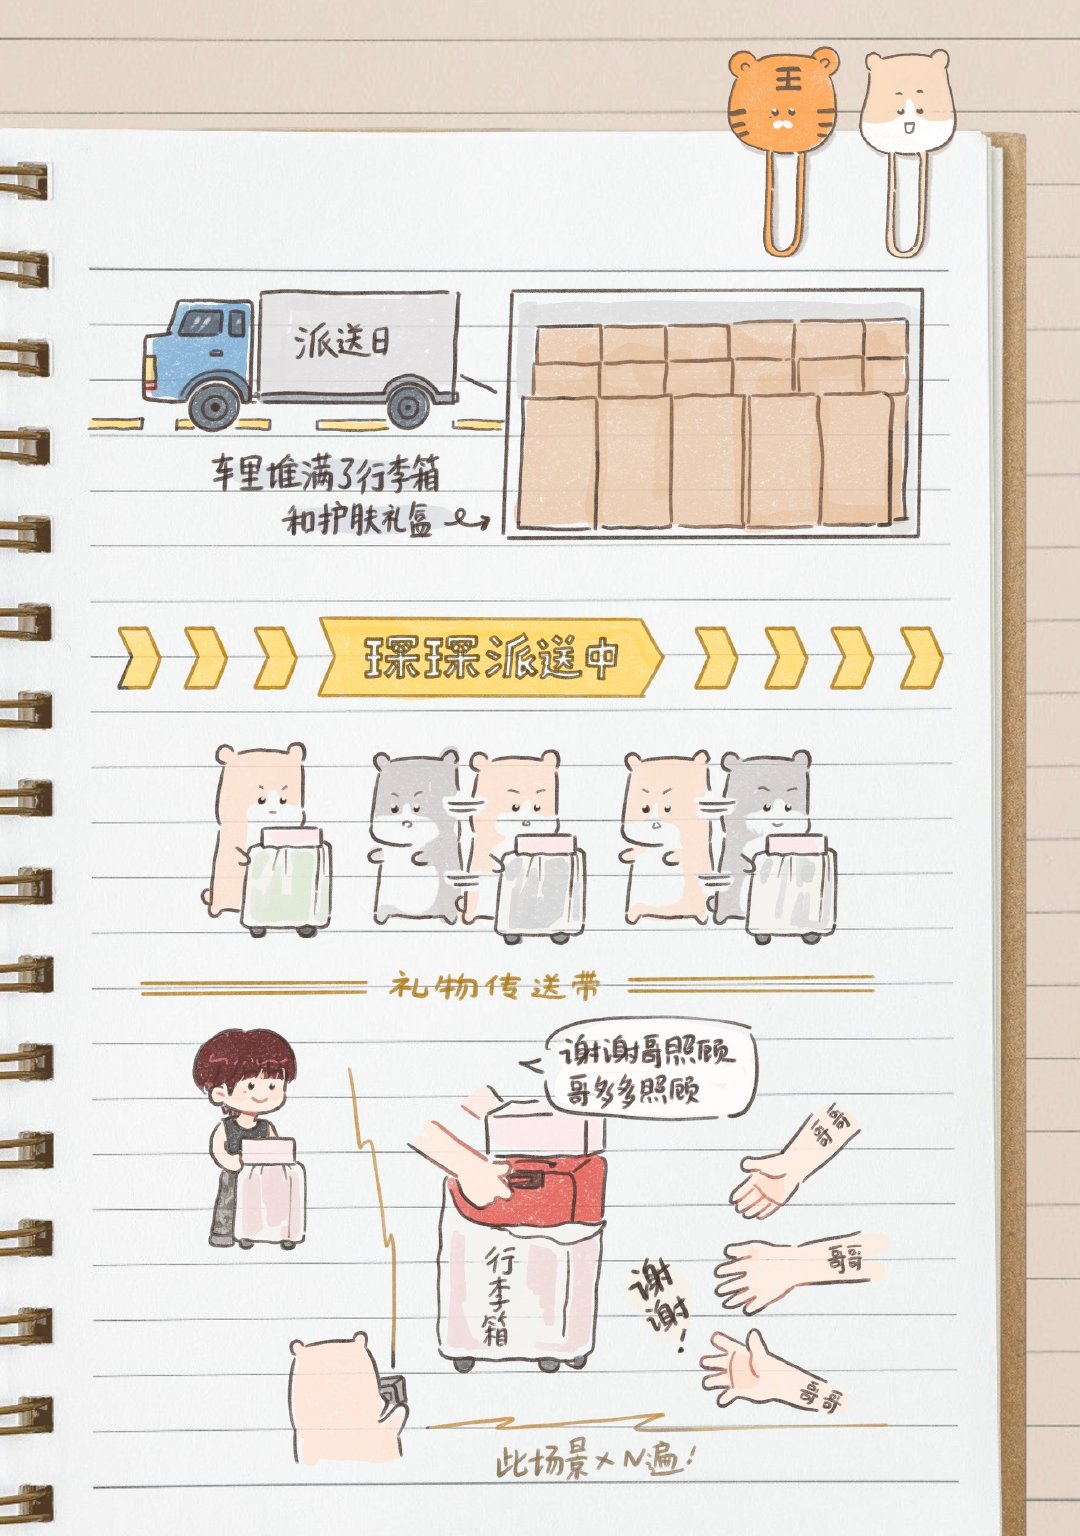 王
派送日
车里堆满了行李箱
和护肤礼盒
琛琛派送中
礼物传送带
谢谢哥照顾
哥多多照顾
哥哥
行李箱
哥哥
谢谢!
哥哥
此场景×N遍!